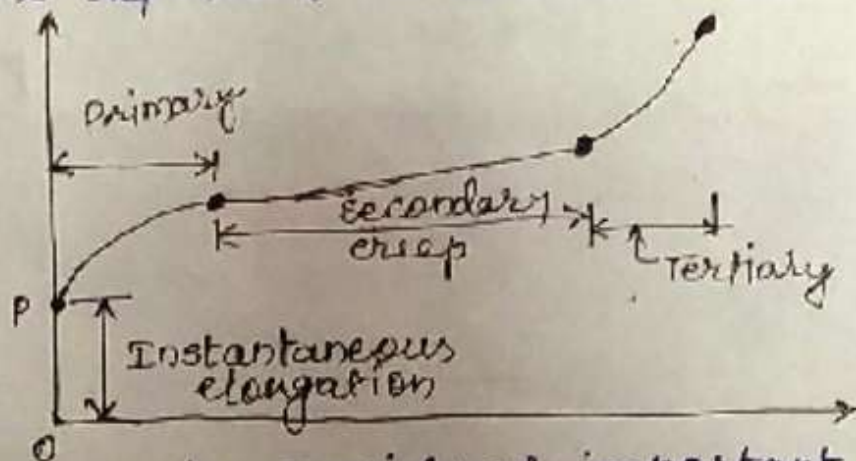 Primary
Secondary
creep
Tertiary
P
Instantaneous
elongation
O
important